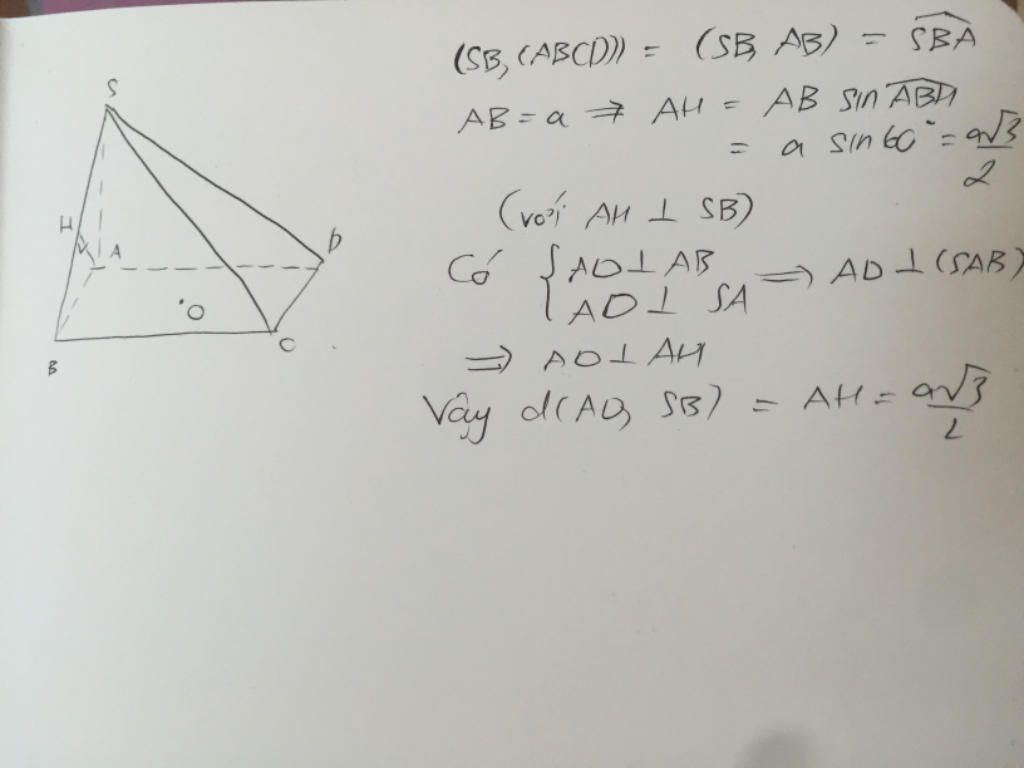 S
H
A
D
O
B
C
(SB, (ABCD)) = (SB, AB) = \widehat{SBA}
AB = a ⇒ AH = AB sin \widehat{ABH}
= a sin 60° = \frac{a√3}{2}
(với AH ⊥ SB)
Có { AD ⊥ AB ⇒ AD ⊥ (SAB)
AD ⊥ SA
⇒ AD ⊥ AH
Vậy d(AD, SB) = AH = \frac{a√3}{2}